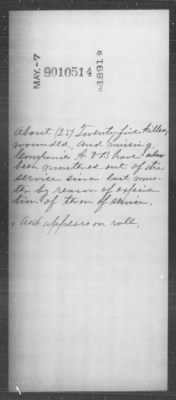 MAY.-7
9010514
1891
About (25) Twenty five killed,
wounded, and missing.
Companies A & B have also
been mustered out of the
service since last mus-
ter by reason of expira-
tion of term of service.
appears on roll.